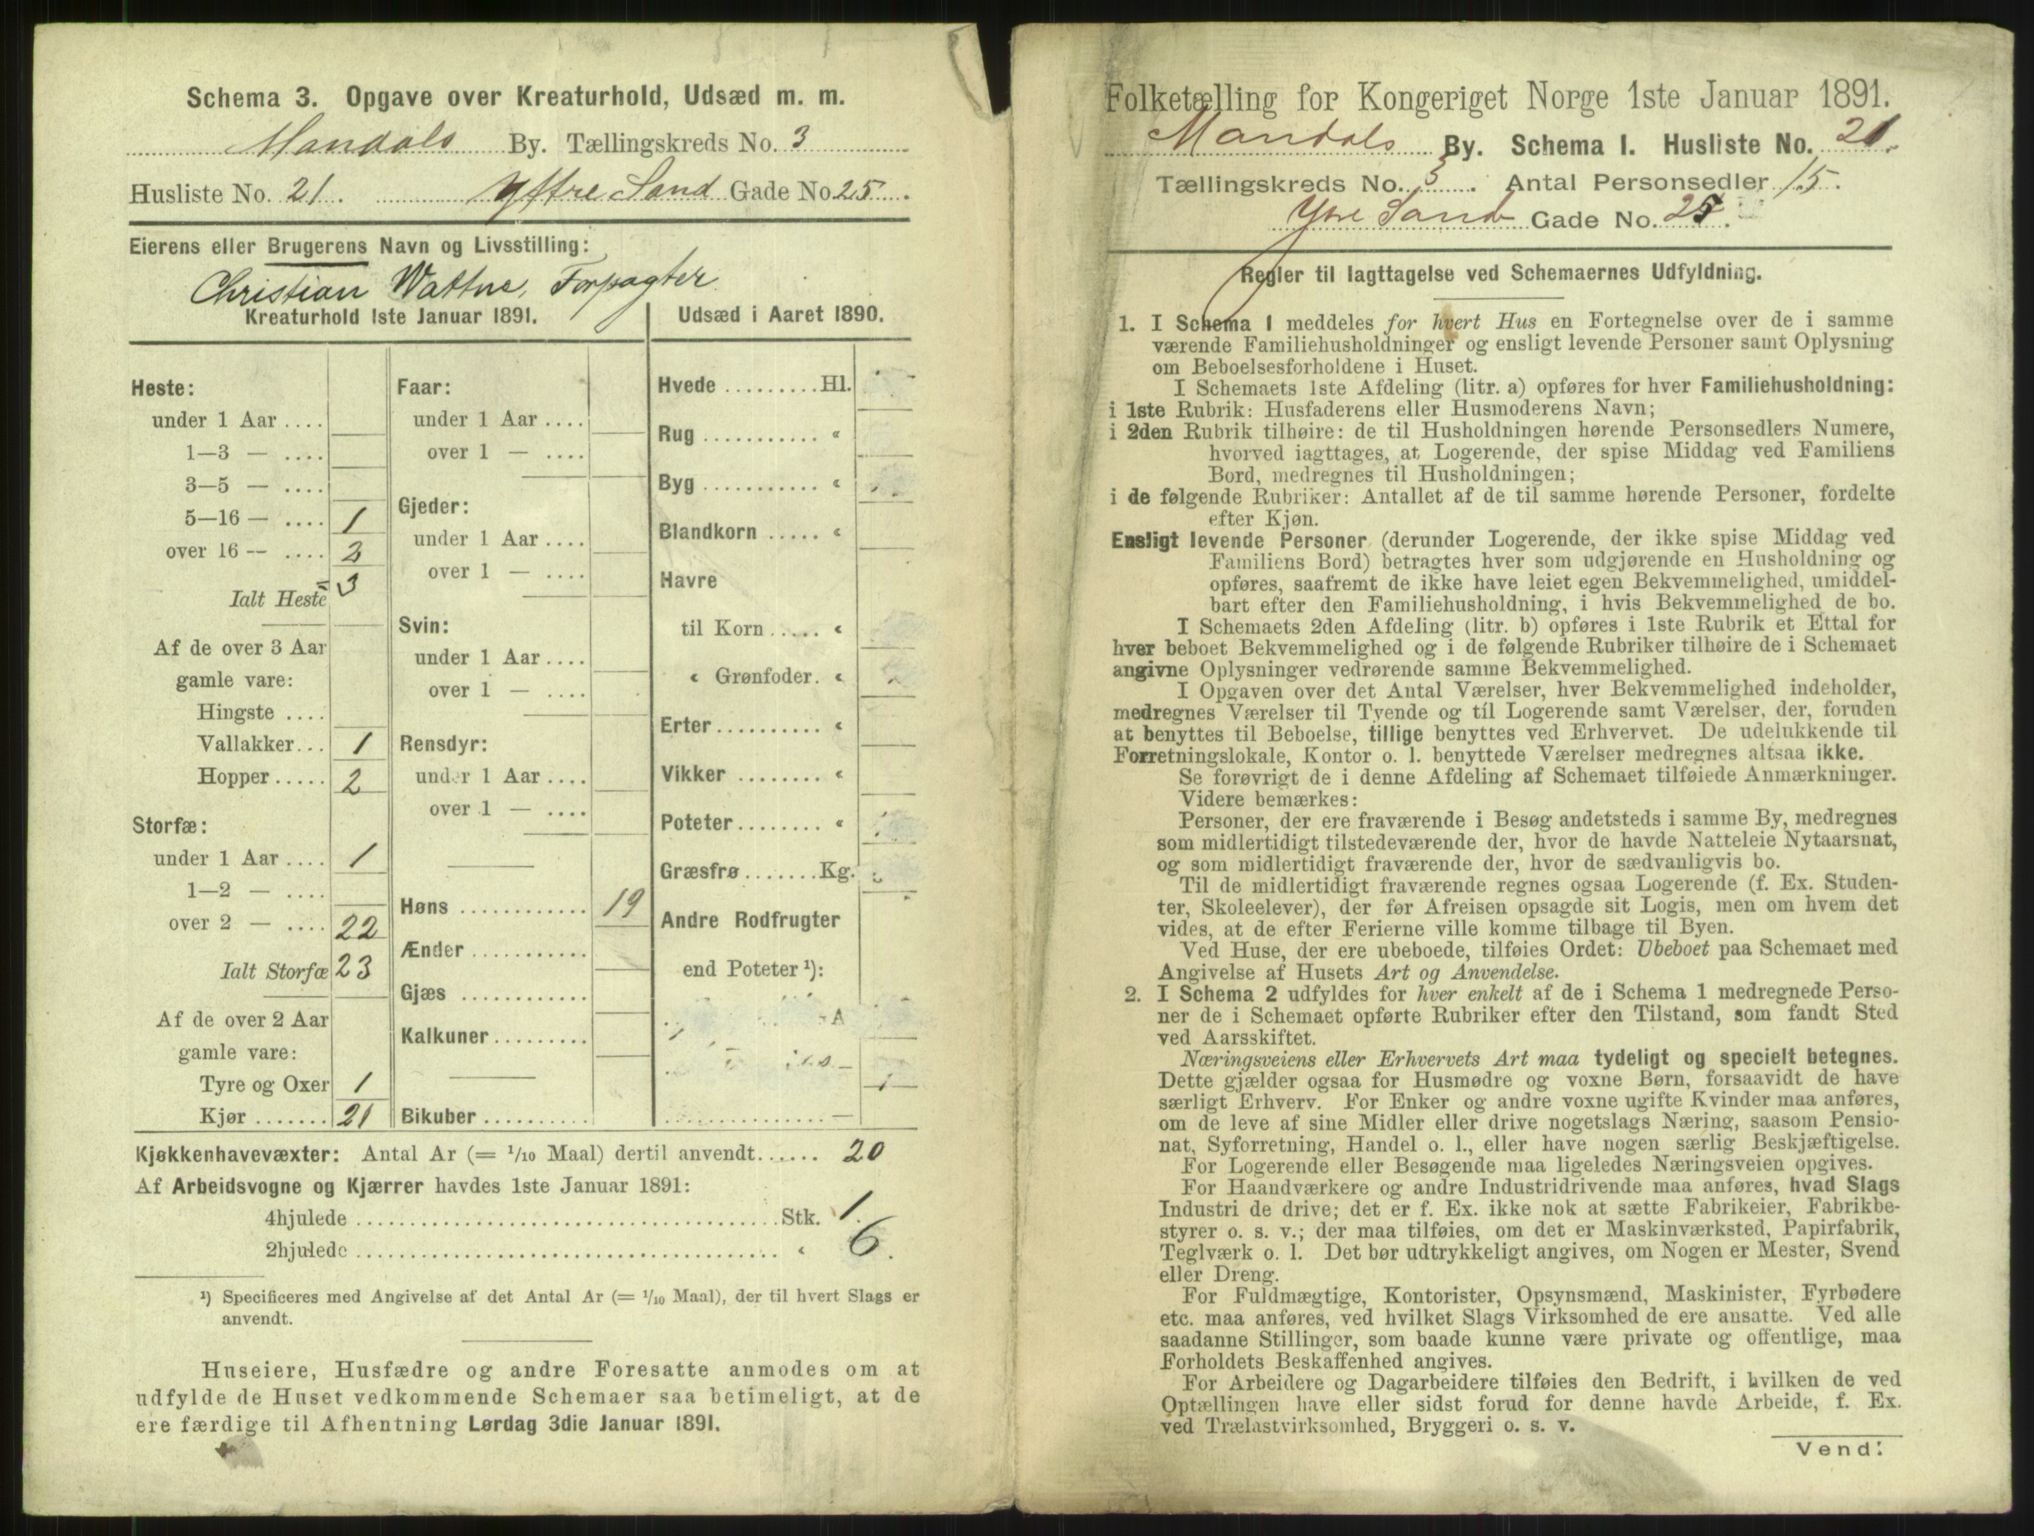 Schema 3. Opgave over Kreaturhold, Udsæd m. m.
Mandals By. Tællingskreds No. 3
Husliste No. 21. Yttre Sand Gade No. 25.
Eierens eller Brugerens Navn og Livsstilling:
Christian Wattne, Forpagter
Kreaturhold 1ste Januar 1891.
Heste:
under 1 Aar ....
1—3 — ....
3—5 — ....
5—16 — .... 1
over 16 — .... 2
Ialt Heste 3
Af de over 3 Aar
gamle vare:
Hingste ....
Vallakker... 1
Hopper..... 2
Storfæ:
under 1 Aar .... 1
1—2 — ....
over 2 — .... 22
Ialt Storfæ 23
Af de over 2 Aar
gamle vare:
Tyre og Oxer 1
Kjør....... 21
Faar:
under 1 Aar ....
over 1 — ....
Gjeder:
under 1 Aar ....
over 1 — ....
Svin:
under 1 Aar ....
over 1 — ....
Rensdyr:
under 1 Aar ....
over 1 — ....
Høns ............ 19
Ænder ...........
Gjæs ............
Kalkuner.........
Bikuber ..........
Udsæd i Aaret 1890.
Hvede ......... Hl.
Rug ........... «
Byg ........... «
Blandkorn ..... «
Havre
til Korn ..... «
« Grønfoder. «
Erter .......... «
Vikker ........ «
Poteter........ «
Græsfrø....... Kg.
Andre Rodfrugter
end Poteter ¹):
Kjøkkenhavevæxter: Antal Ar (= 1/10 Maal) dertil anvendt...... 20
Af Arbeidsvogne og Kjærrer havdes 1ste Januar 1891:
4hjulede ........................................ Stk. 1.
2hjulede ........................................ « 6.
¹) Specificeres med Angivelse af det Antal Ar (= 1/10 Maal), der til hvert Slags er
anvendt.
Huseiere, Husfædre og andre Foresatte anmodes om at
udfylde de Huset vedkommende Schemaer saa betimeligt, at de
ere færdige til Afhentning Lørdag 3die Januar 1891.
Folketælling for Kongeriget Norge 1ste Januar 1891.
Mandals By. Schema I. Husliste No. 21.
Tællingskreds No. 3. Antal Personsedler 15.
Ytre Sand Gade No. 25.
Regler til Iagttagelse ved Schemaernes Udfyldning.
1. I Schema I meddeles for hvert Hus en Fortegnelse over de i samme
værende Familiehusholdninger og ensligt levende Personer samt Oplysning
om Beboelsesforholdene i Huset.
I Schemaets 1ste Afdeling (litr. a) opføres for hver Familiehusholdning:
i 1ste Rubrik: Husfaderens eller Husmoderens Navn;
i 2den Rubrik tilhøire: de til Husholdningen hørende Personsedlers Numere,
hvorved iagttages, at Logerende, der spise Middag ved Familiens
Bord, medregnes til Husholdningen;
i de følgende Rubriker: Antallet af de til samme hørende Personer, fordelte
efter Kjøn.
Ensligt levende Personer (derunder Logerende, der ikke spise Middag ved
Familiens Bord) betragtes hver som udgjørende en Husholdning og
opføres, saafremt de ikke have leiet egen Bekvemmelighed, umiddel-
bart efter den Familiehusholdning, i hvis Bekvemmelighed de bo.
I Schemaets 2den Afdeling (litr. b) opføres i 1ste Rubrik et Ettal for
hver beboet Bekvemmelighed og i de følgende Rubriker tilhøire de i Schemaet
angivne Oplysninger vedrørende samme Bekvemmelighed.
I Opgaven over det Antal Værelser, hver Bekvemmelighed indeholder,
medregnes Værelser til Tyende og til Logerende samt Værelser, der, foruden
at benyttes til Beboelse, tillige benyttes ved Erhvervet. De udelukkende til
Forretningslokale, Kontor o. l. benyttede Værelser medregnes altsaa ikke.
Se forøvrigt de i denne Afdeling af Schemaet tilføiede Anmærkninger.
Videre bemærkes:
Personer, der ere fraværende i Besøg andetsteds i samme By, medregnes
som midlertidigt tilstedeværende der, hvor de havde Natteleie Nytaarsnat,
og som midlertidigt fraværende der, hvor de sædvanligvis bo.
Til de midlertidigt fraværende regnes ogsaa Logerende (f. Ex. Studen-
ter, Skoleelever), der før Afreisen opsagde sit Logis, men om hvem det
vides, at de efter Ferierne ville komme tilbage til Byen.
Ved Huse, der ere ubeboede, tilføies Ordet: Ubeboet paa Schemaet med
Angivelse af Husets Art og Anvendelse.
2. I Schema 2 udfyldes for hver enkelt af de i Schema 1 medregnede Perso-
ner de i Schemaet opførte Rubriker efter den Tilstand, som fandt Sted
ved Aarsskiftet.
Næringsveiens eller Erhvervets Art maa tydeligt og specielt betegnes.
Dette gjælder ogsaa for Husmødre og voxne Børn, forsaavidt de have
særligt Erhverv. For Enker og andre voxne ugifte Kvinder maa anføres,
om de leve af sine Midler eller drive nogetslags Næring, saasom Pensio-
nat, Syforretning, Handel o. l., eller have nogen særlig Beskjæftigelse.
For Logerende eller Besøgende maa ligeledes Næringsveien opgives.
For Haandværkere og andre Industridrivende maa anføres, hvad Slags
Industri de drive; det er f. Ex. ikke nok at sætte Fabrikeier, Fabrikbe-
styrer o. s. v.; der maa tilføies, om det er Maskinværksted, Papirfabrik,
Teglværk o. l. Det bør udtrykkeligt angives, om Nogen er Mester, Svend
eller Dreng.
For Fuldmægtige, Kontorister, Opsynsmænd, Maskinister, Fyrbødere
etc. maa anføres, ved hvilket Slags Virksomhed de ere ansatte. Ved alle
saadanne Stillinger, som baade kunne være private og offentlige, maa
Forholdets Beskaffenhed angives.
For Arbeidere og Dagarbeidere tilføies den Bedrift, i hvilken de ved
Optællingen have eller sidst forud for denne havde Arbeide, f. Ex.
ved Trælastvirksomhed, Bryggeri o. s. v.
Vend!